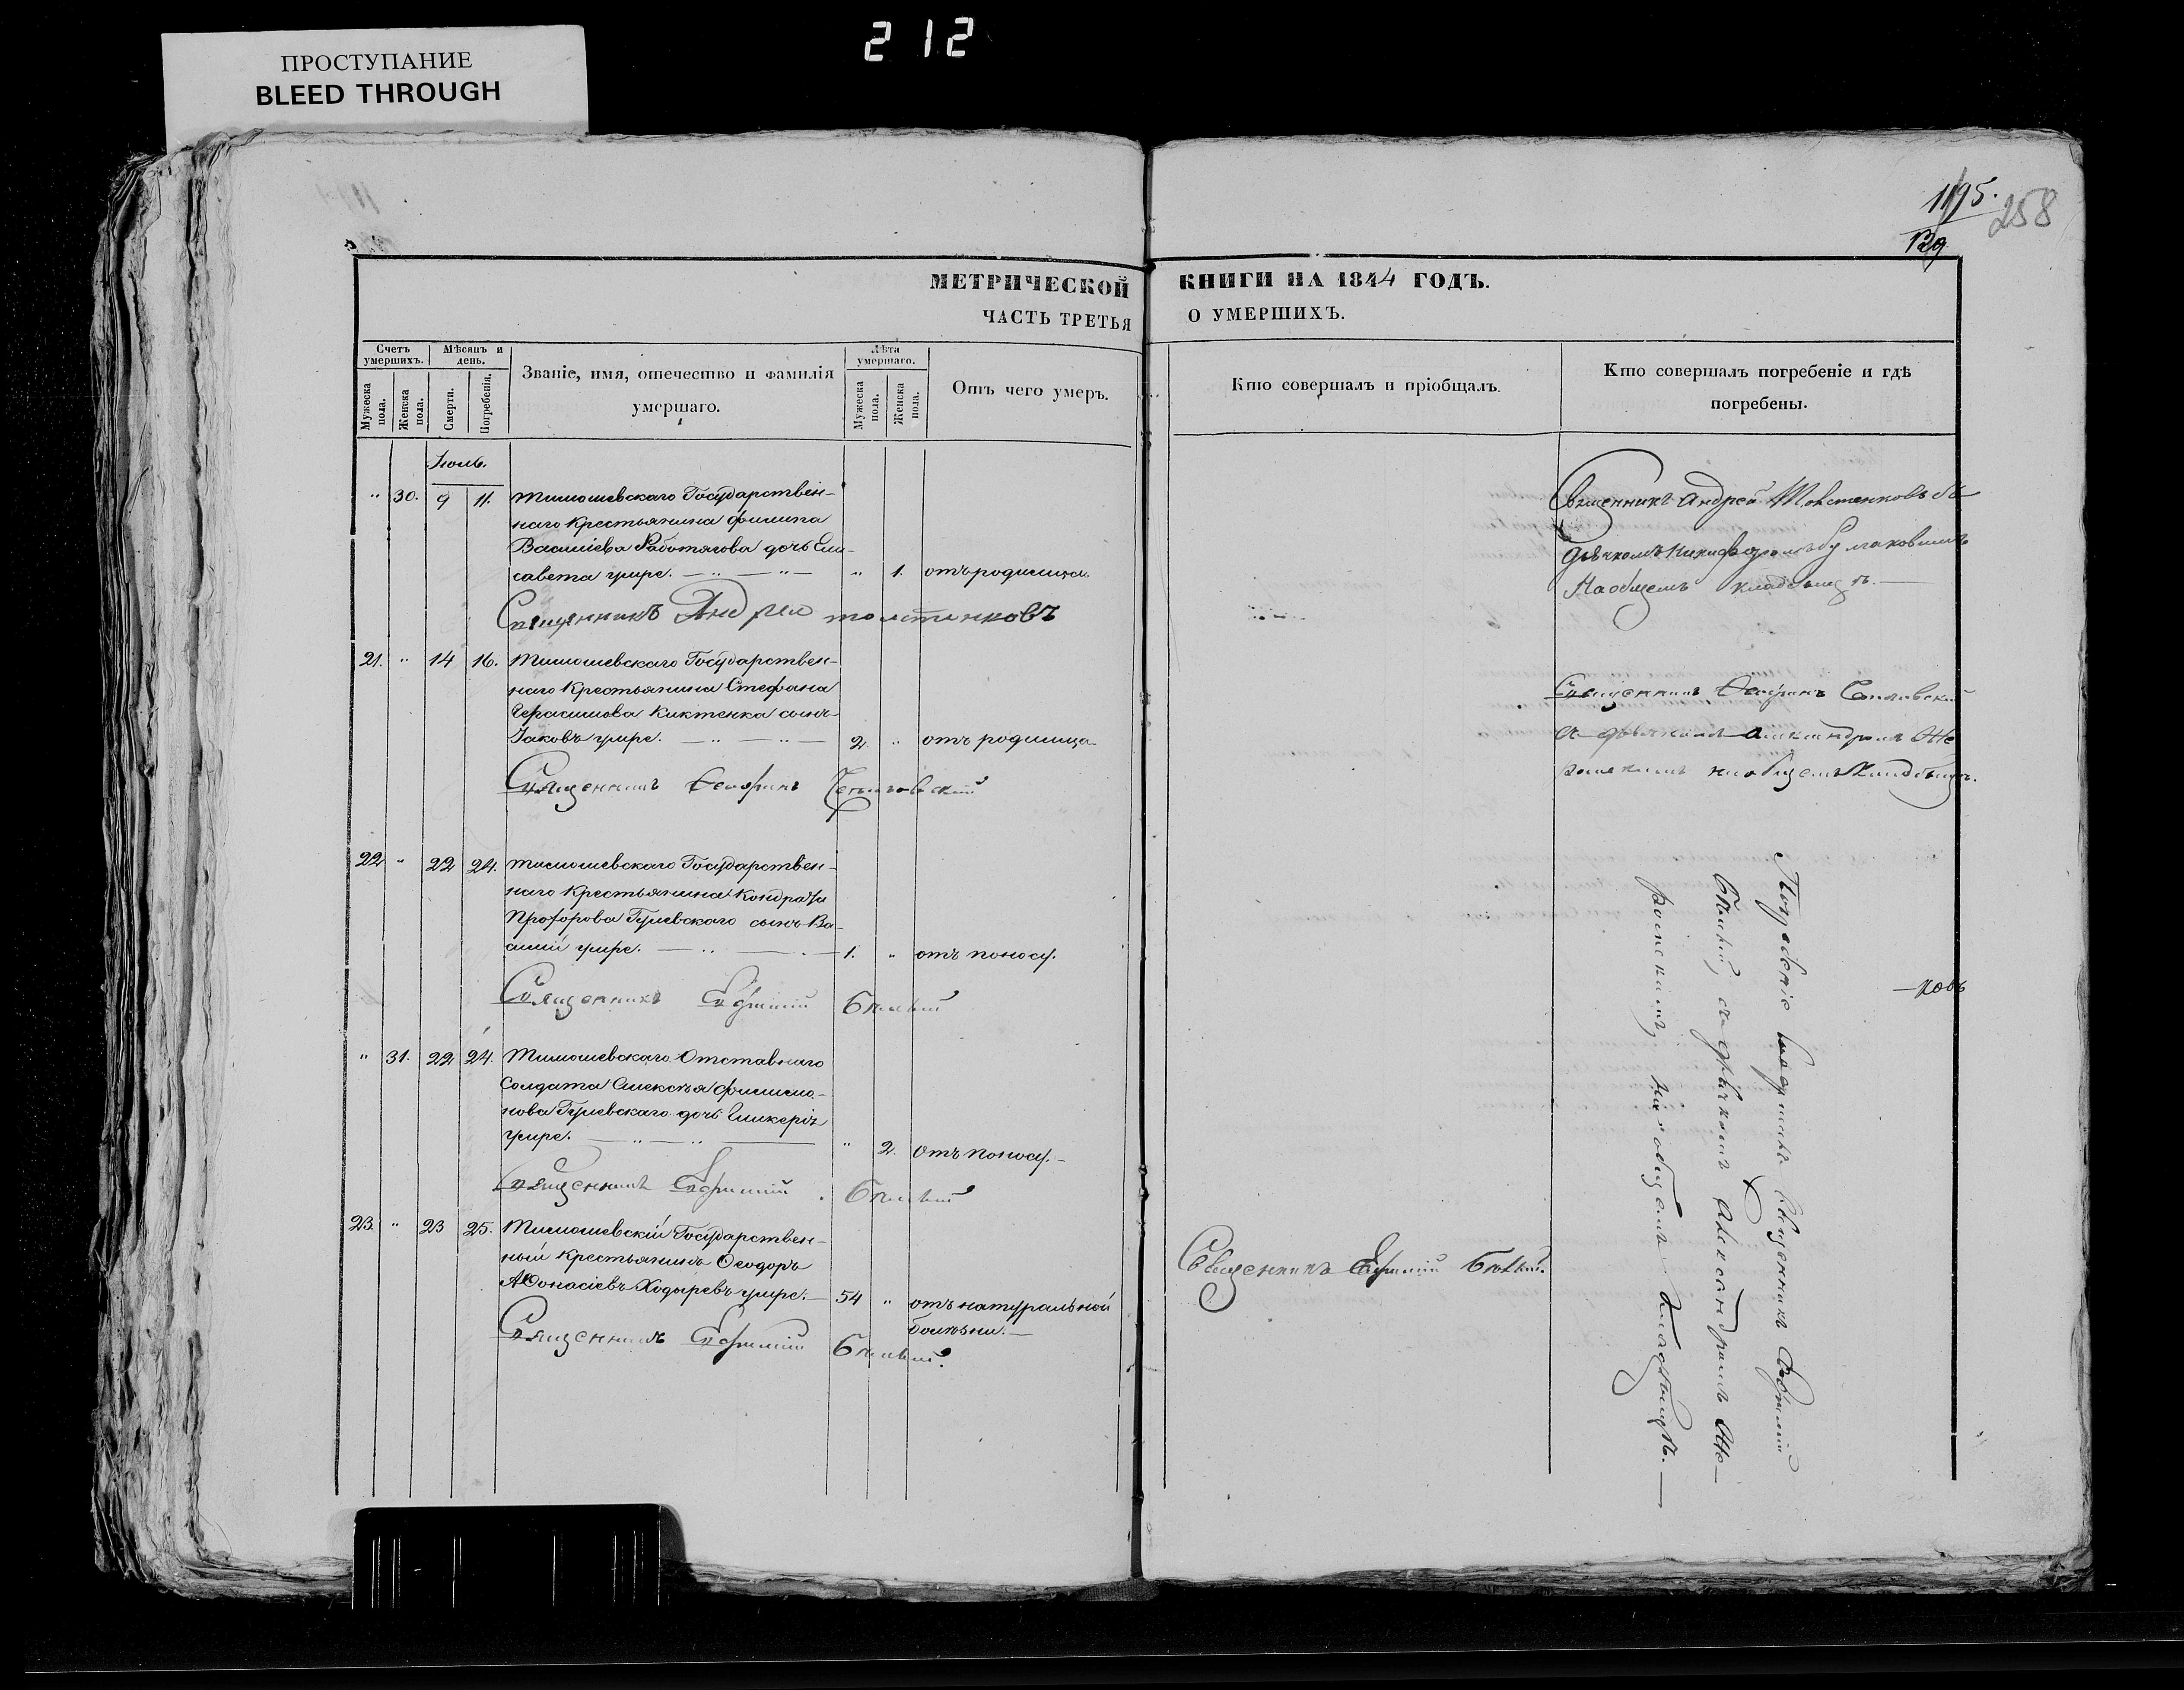 212
ПРОСТУПАНИЕ
BLEED THROUGH
1195.
129
258
МЕТРИЧЕСКОЙ КНИГИ НА 1844 ГОДЪ.
ЧАСТЬ ТРЕТЬЯ О УМЕРШИХЪ.
Счетъ умершихъ.
Мужеска пола.
Женска пола.
Мѣсяцъ и день.
Смерти.
Погребенія.
Званіе, имя, отечество и фамилія
умершаго.
Лѣта умершаго.
Мужеска пола.
Женска пола.
Отъ чего умеръ.
Кто совершалъ и пріобщалъ.
Кто совершалъ погребеніе и гдѣ
погребены.
Іюль.
" 30. 9 11. Тимошевскаго Государствен-
наго Крестьянина Филипа
Василіева Работягова дочь Ели-
савета умре. " 1. отъ родимца
Священникъ Андрей Толстенковъ
Священникъ Андрей Толстенковъ съ
дьячкомъ Никифоромъ Булгаковымъ
На общемъ кладбищѣ.
21. " 14 16. Тимошевскаго Государствен-
наго Крестьянина Стефана
Герасимова Киктенка сынъ
Іаковъ умре. 2. " отъ родимца
Священникъ
Священникъ
съ дьячкомъ Александромъ
на общемъ Кладбищѣ.
22 " 22 24. Тимошевскаго Государствен-
наго Крестьянина Кондрата
Прохорова Гулевскаго сынъ Ва-
силій умре. 1. " отъ поносу.
Священникъ Евфимій Бѣлый
" 31. 22 24. Тимошевскаго Отставнаго
Солдата Алексѣя Филимо-
нова Гулевскаго дочь Гликерія
умре. " 2. Отъ Поносу.
Священникъ Евфимій Бѣлый
23. " 23 25. Тимошевскій Государствен-
ный Крестьянинъ Ѳеодоръ
Аѳонасіевъ Ходыревъ умре. 54 " отъ натуральной
болѣзни.
Священникъ Евфимій Бѣлый.
Священникъ Евфимій Бѣлый.
Погребеніе совершалъ Священникъ Евфимій
Бѣлый, съ дьячкомъ Александромъ
на общемъ Кладбищѣ.